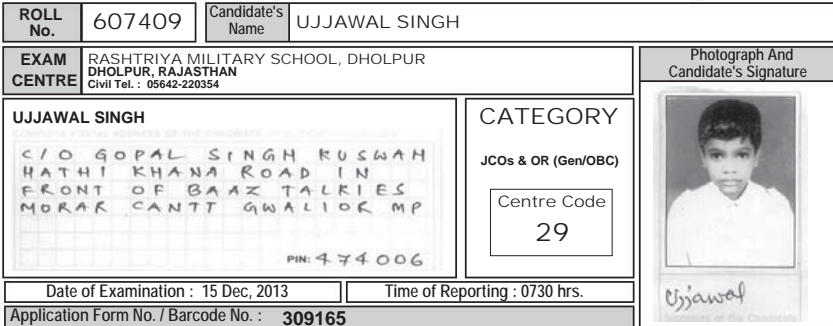 ROLL No. 607409 Candidate's Name UJJAWAL SINGH
EXAM CENTRE RASHTRIYA MILITARY SCHOOL, DHOLPUR
DHOLPUR, RAJASTHAN
Civil Tel. : 05642-220354
Photograph And
Candidate's Signature
UJJAWAL SINGH
COMPLETE POSTAL ADDRESS OF THE CANDIDATE
C/O GOPAL SINGH KUSWAH
HATHI KHANA ROAD IN
FRONT OF BAAZ TALKIES
MORAR CANTT GWALIOR MP
PIN: 474006
CATEGORY
JCOs & OR (Gen/OBC)
Centre Code
29
Ujjawal
Signature of the Candidate
Date of Examination : 15 Dec, 2013 Time of Reporting : 0730 hrs.
Application Form No. / Barcode No. : 309165